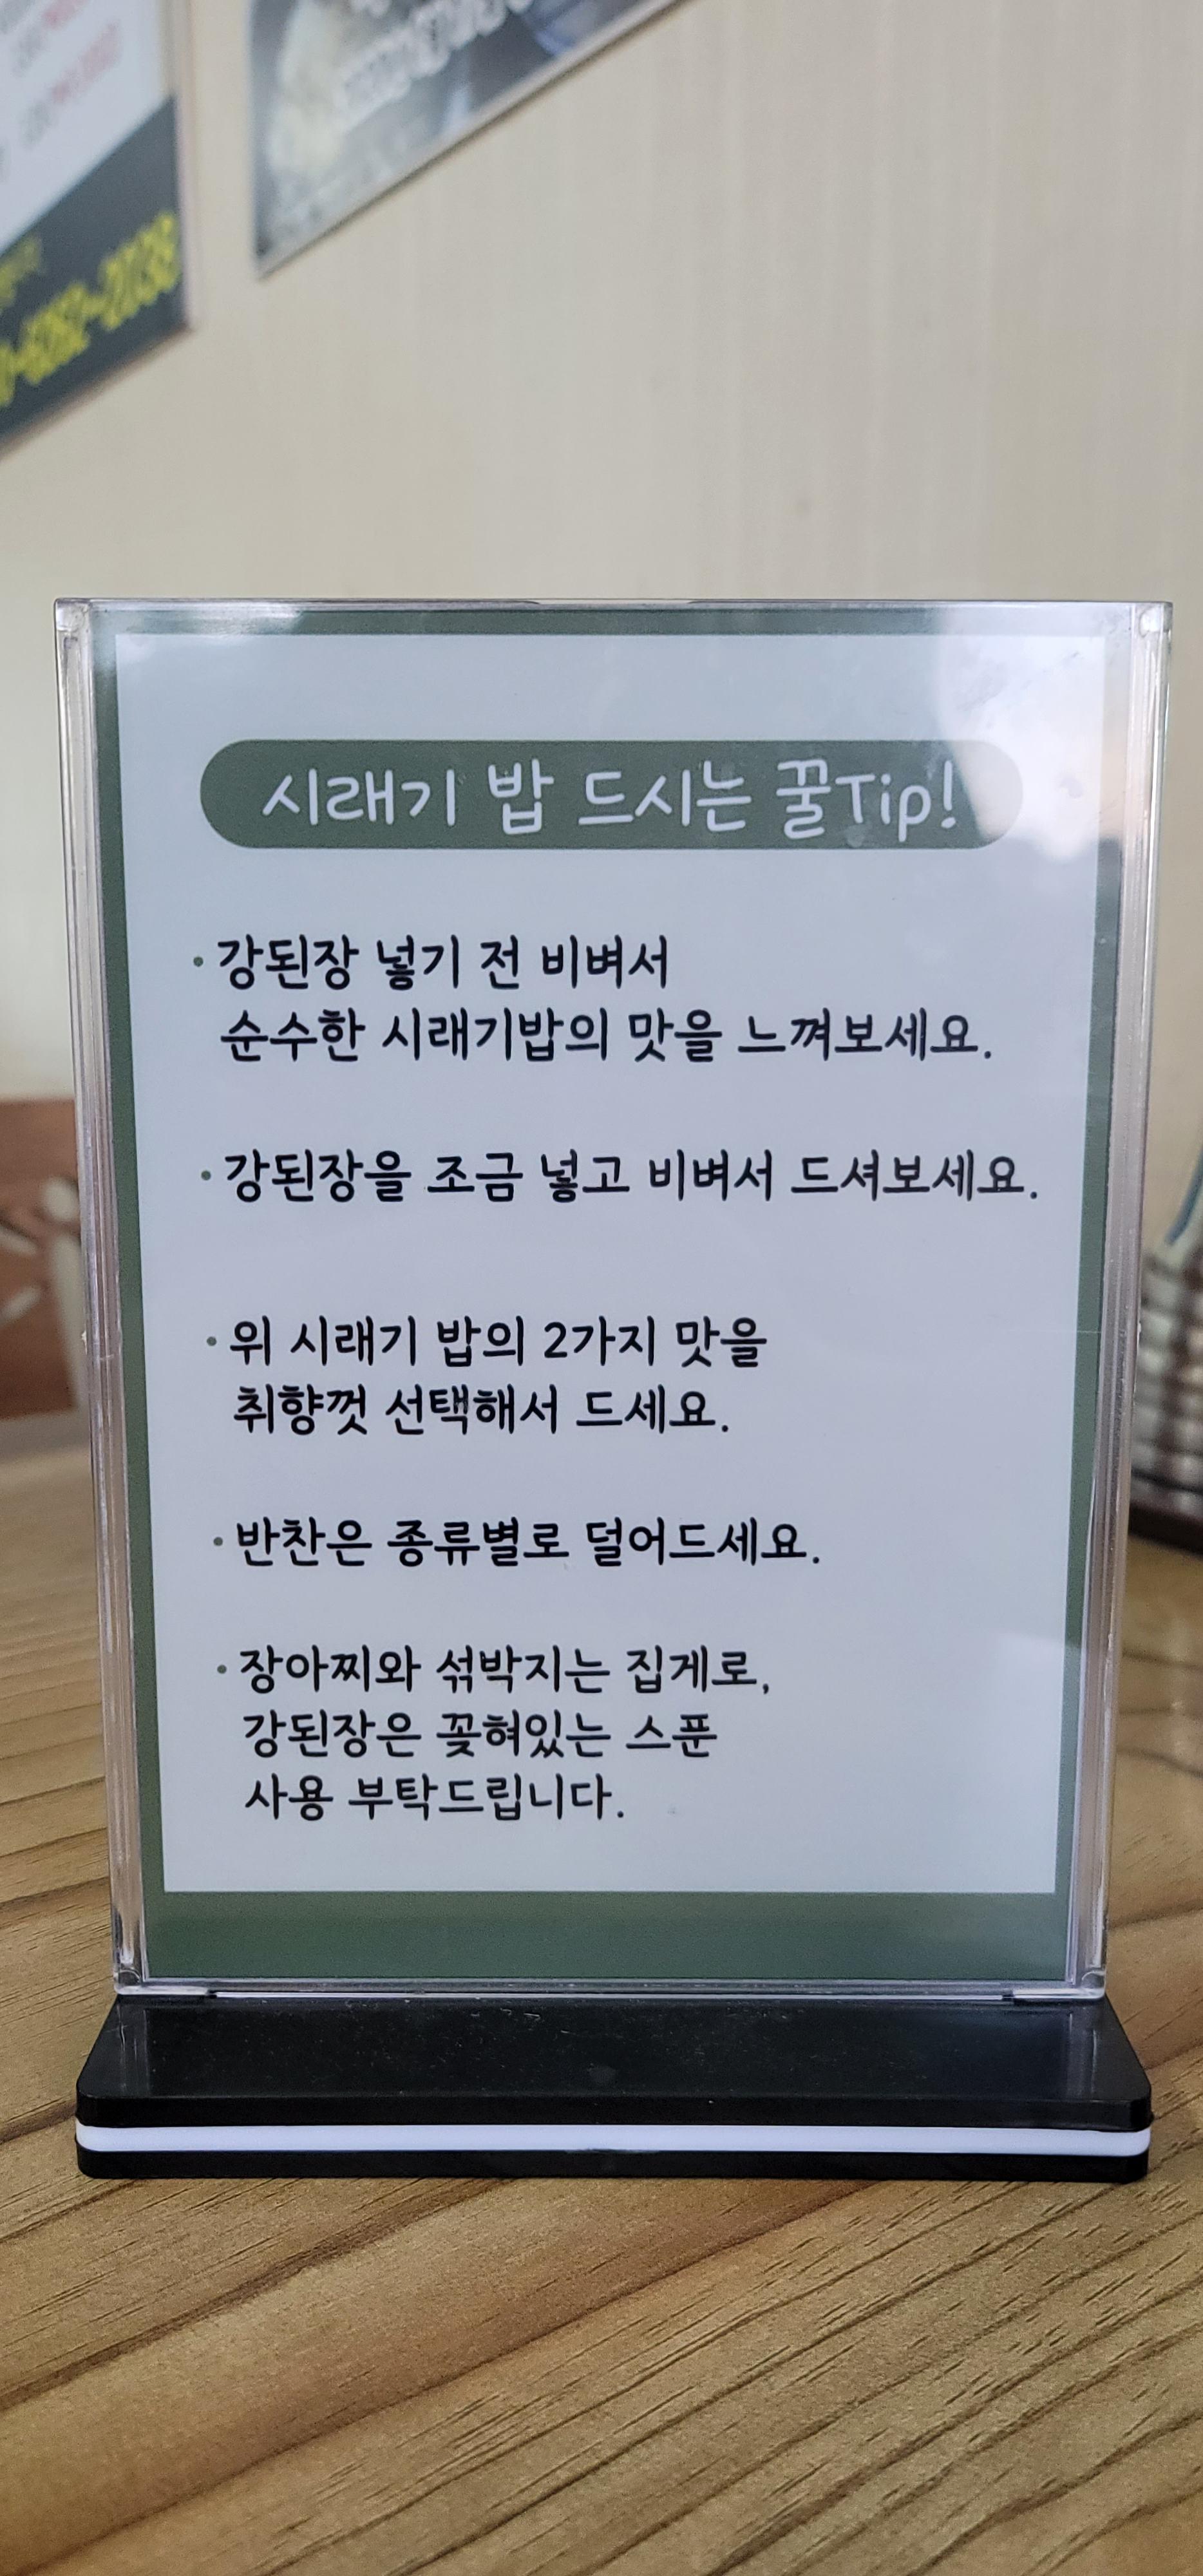 시래기 밥 드시는 꿀Tip!
· 강된장 넣기 전 비벼서
순수한 시래기밥의 맛을 느껴보세요.
· 강된장을 조금 넣고 비벼서 드셔보세요.
· 위 시래기 밥의 2가지 맛을
취향껏 선택해서 드세요.
· 반찬은 종류별로 덜어드세요.
· 장아찌와 섞박지는 집게로,
강된장은 꽂혀있는 스푼
사용 부탁드립니다.